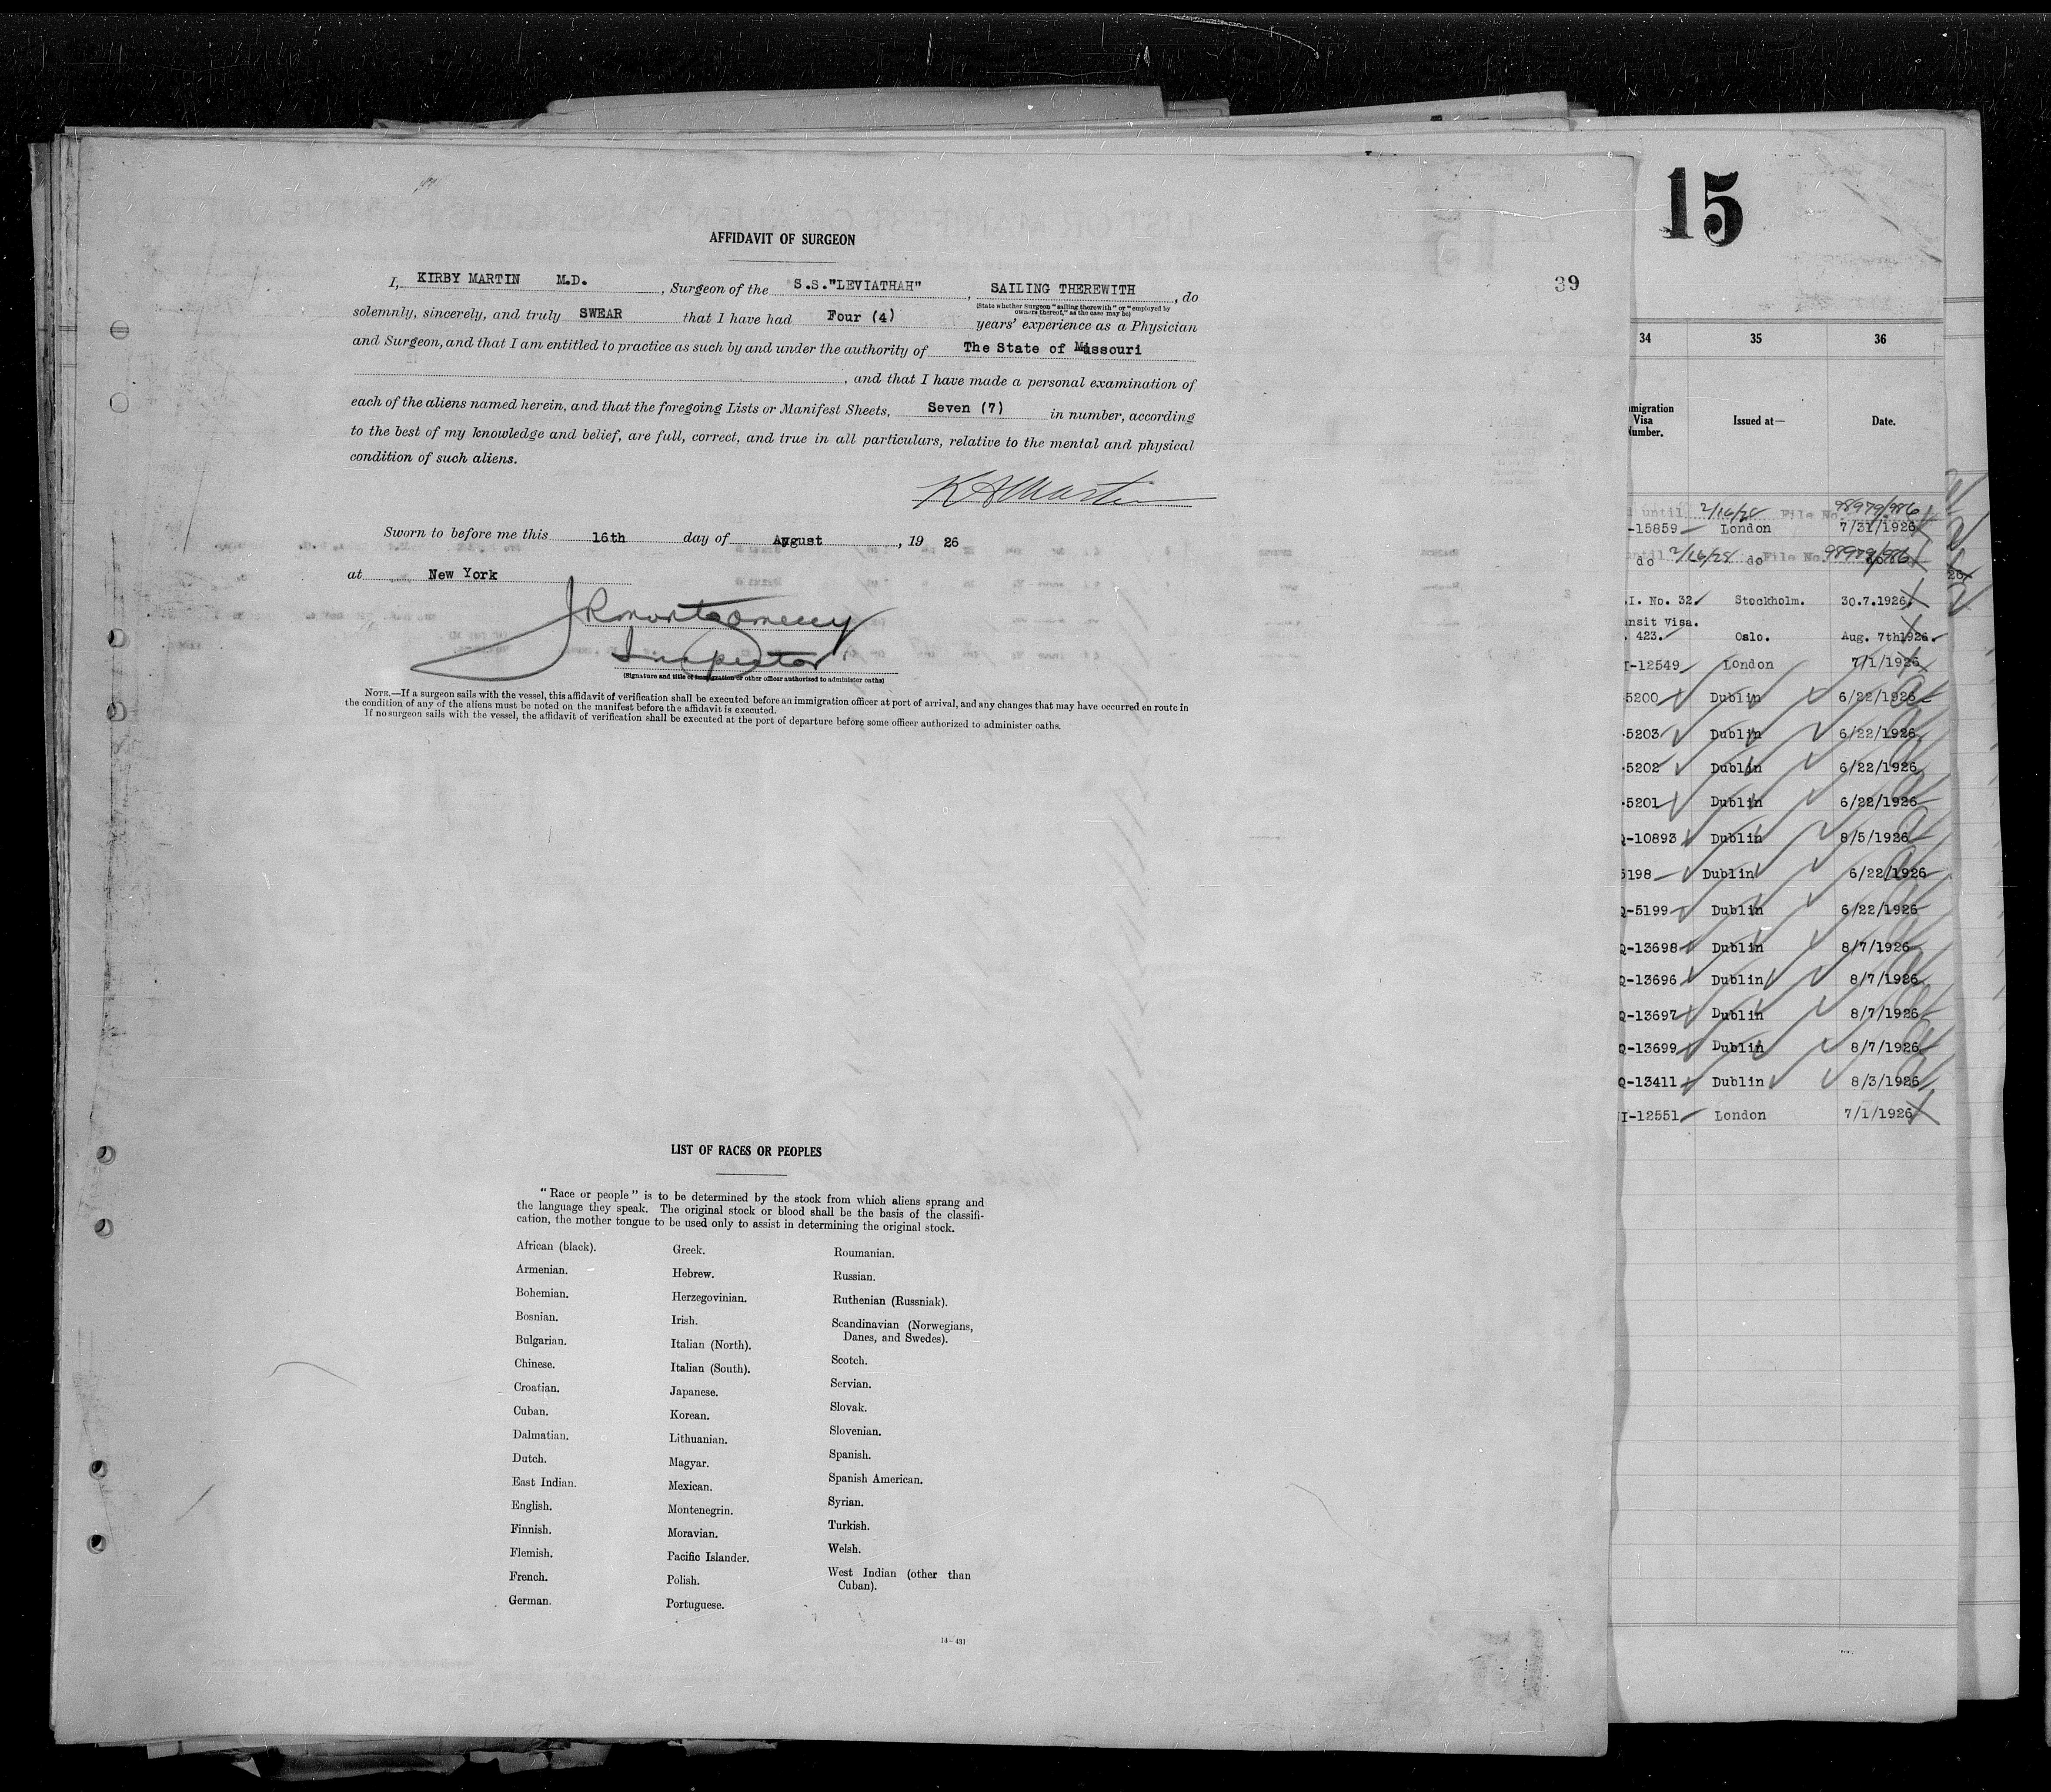 AFFIDAVIT OF SURGEON
39
I, KIRBY MARTIN M.D. , Surgeon of the S.S."LEVIATHAH" , SAILING THEREWITH , do
(State whether Surgeon "sailing therewith" or "employed by
owners thereof," as the case may be)
solemnly, sincerely, and truly SWEAR that I have had Four (4) years' experience as a Physician
and Surgeon, and that I am entitled to practice as such by and under the authority of The State of Missouri
, and that I have made a personal examination of
each of the aliens named herein, and that the foregoing Lists or Manifest Sheets, Seven (7) in number, according
to the best of my knowledge and belief, are full, correct, and true in all particulars, relative to the mental and physical
condition of such aliens.
K A Martin
Sworn to before me this 16th day of August , 19 26
at New York
J R Montgomery
Inspector
(Signature and title of immigration or other officer authorized to administer oaths)
NOTE.—If a surgeon sails with the vessel, this affidavit of verification shall be executed before an immigration officer at port of arrival, and any changes that may have occurred en route in
the condition of any of the aliens must be noted on the manifest before the affidavit is executed.
If no surgeon sails with the vessel, the affidavit of verification shall be executed at the port of departure before some officer authorized to administer oaths.
LIST OF RACES OR PEOPLES
"Race or people" is to be determined by the stock from which aliens sprang and
the language they speak. The original stock or blood shall be the basis of the classifi-
cation, the mother tongue to be used only to assist in determining the original stock.
African (black).
Armenian.
Bohemian.
Bosnian.
Bulgarian.
Chinese.
Croatian.
Cuban.
Dalmatian.
Dutch.
East Indian.
English.
Finnish.
Flemish.
French.
German.
Greek.
Hebrew.
Herzegovinian.
Irish.
Italian (North).
Italian (South).
Japanese.
Korean.
Lithuanian.
Magyar.
Mexican.
Montenegrin.
Moravian.
Pacific Islander.
Polish.
Portuguese.
Roumanian.
Russian.
Ruthenian (Russniak).
Scandinavian (Norwegians,
Danes, and Swedes).
Scotch.
Servian.
Slovak.
Slovenian.
Spanish.
Spanish American.
Syrian.
Turkish.
Welsh.
West Indian (other than
Cuban).
14—431
15
34 35 36
migration
Visa
Number.
Issued at—
Date.
until 2/16/28 File No. 98979/986
-15859 London 7/31/1926
until 2/16/28 File No. 98979/986
do do do
.I. No. 32. Stockholm. 30.7.1926.
ansit Visa.
. 423. Oslo. Aug. 7th1926.
I-12549 London 7/1/1926
5200 Dublin 6/22/1926
-5203 Dublin 6/22/1926
-5202 Dublin 6/22/1926
-5201 Dublin 6/22/1926
Q-10893 Dublin 8/5/1926
5198 Dublin 6/22/1926
Q-5199 Dublin 6/22/1926
Q-13698 Dublin 8/7/1926
Q-13696 Dublin 8/7/1926
Q-13697 Dublin 8/7/1926
Q-13699 Dublin 8/7/1926
Q-13411 Dublin 8/3/1926
I-12551 London 7/1/1926